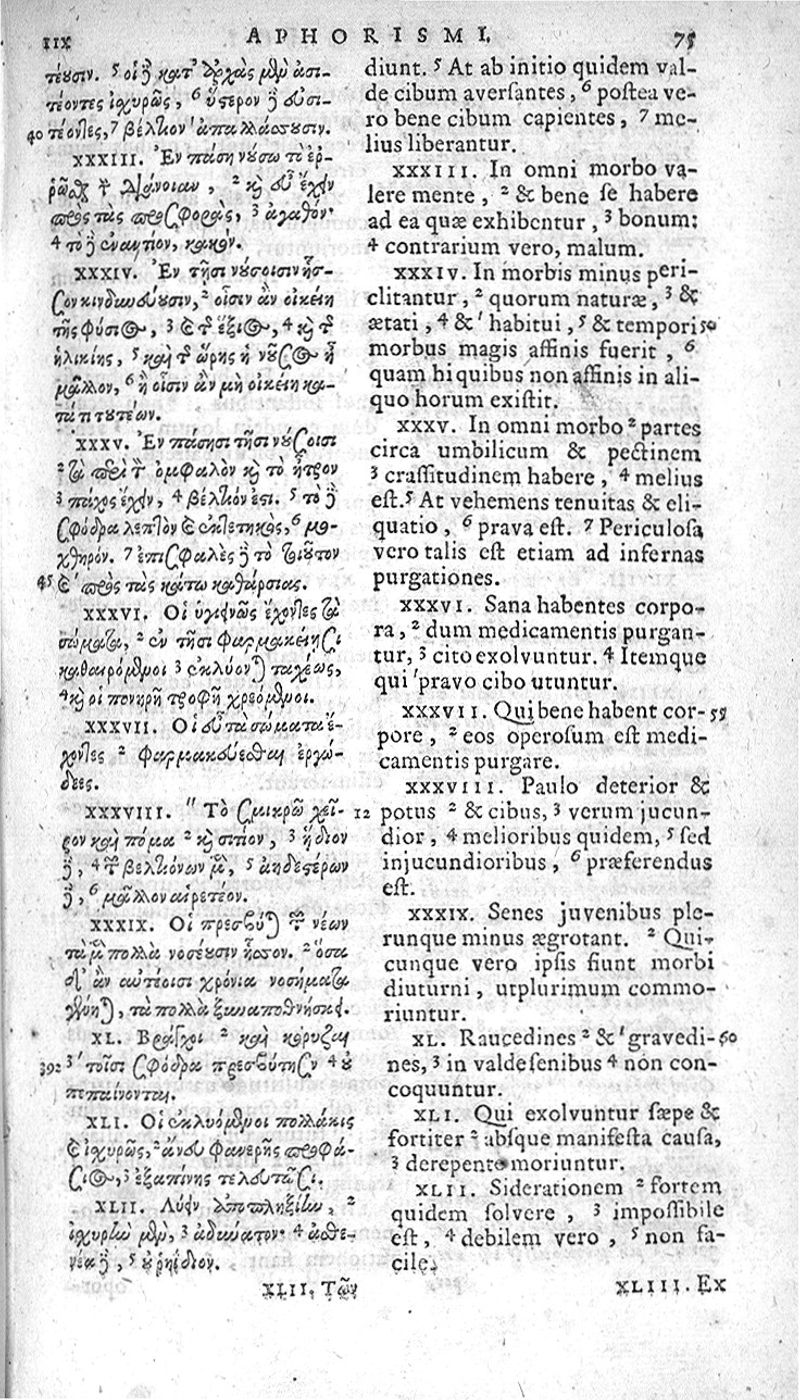 IIX APHORISMI. 75
τεουσιν. 5 οἱ δὲ κατ' ἀρχὰς μὲν ἀσι-
τέοντες ἰσχυρῶς, 6 ὕστερον δὲ εὐσι-
40 τέοντες, 7 βέλτιον ' ἀπαλλάσσουσιν.
XXXIII. Ἐν πάση νούσω τὸ ἐρ-
ρῶσθαι τὴν διάνοιαν, 2 καὶ εὖ ἔχειν
πρὸς τὰς προσφορὰς, 3 ἀγαθόν·
4 τὸ δὲ ἐναντίον, κακόν.
XXXIV. Ἐν τῆσι νούσοισιν ἧσ-
σον κινδυνεύουσιν, 2 οἷσιν ἂν οἰκείη
τῆς φύσιος, 3 καὶ τῆς ἕξιος, 4 καὶ τῆς
ἡλικίης, 5 καὶ τῆς ὥρης ἡ νοῦσος ᾖ
μᾶλλον, 6 ἢ οἷσιν ἂν μὴ οἰκείη κα-
τά τι τουτέων.
XXXV. Ἐν πάσησι τῆσι νούσοισι
2 τὰ περὶ τὸν ὀμφαλὸν καὶ τὸ ἦτρον
3 πάχος ἔχειν, 4 βέλτιόν ἐστι. 5 τὸ δὲ
σφόδρα λεπτὸν καὶ ἐκτετηκὸς, 6 μο-
χθηρόν. 7 ἐπισφαλὲς δὲ τὸ τοιοῦτον
45 καὶ πρὸς τὰς κάτω καθάρσιας.
XXXVI. Οἱ ὑγιεινῶς ἔχοντες τὰ
σώματα, 2 ἐν τῆσι φαρμακείησι
καθαιρόμενοι 3 ἐκλύονται ταχέως,
4 καὶ οἱ πονηρῆ τροφῆ χρεόμενοι.
XXXVII. Οἱ εὖ τὰ σώματα ἔ-
χοντες 2 φαρμακεύεσθαι ἐργώ-
δεες.
XXXVIII. " Τὸ σμικρῶ χεῖ-
ρον καὶ πόμα 2 καὶ σιτίον, 3 ἥδιον
δὲ, 4 τῶν βελτιόνων μὲν, 5 ἀηδεστέρων
δὲ, 6 μᾶλλον αἱρετέον.
XXXIX. Οἱ πρεσβῦται τῶν νέων
τὰ μὲν πολλὰ νοσέουσιν ἧσσον. 2 ὅσα
δ' ἂν αὐτέοισι χρόνια νοσήματα
γένηται, τὰ πολλὰ ξυναποθνήσκει.
XL. Βράγχοι 2 καὶ κόρυζαι
392 3 ' τοῖσι σφόδρα πρεσβύτησιν 4 οὐ
πεπαίνονται.
XLI. Οἱ ἐκλυόμενοι πολλάκις
καὶ ἰσχυρῶς, 2 ἄνευ φανερῆς προφά-
σιος, 3 ἐξαπίνης τελευτῶσι.
XLII. Λύειν ἀποπληξίην, 2
ἰσχυρὴν μὲν, 3 ἀδύνατον· 4 ἀσθε-
νέα δὲ, 5 οὐ ῥηίδιον.
XLII. Τῶν
diunt. 5 At ab initio quidem val-
de cibum aversantes, 6 postea ve-
ro bene cibum capientes, 7 me-
lius liberantur.
XXXIII. In omni morbo va-
lere mente, 2 & bene se habere
ad ea quæ exhibentur, 3 bonum:
4 contrarium vero, malum.
XXXIV. In morbis minus peri-
clitantur, 2 quorum naturæ, 3 &
ætati, 4 & ' habitui, 5 & tempori 50
morbus magis affinis fuerit, 6
quam hi quibus non affinis in ali-
quo horum existit.
XXXV. In omni morbo 2 partes
circa umbilicum & pectinem
3 crassitudinem habere, 4 melius
est. 5 At vehemens tenuitas & eli-
quatio, 6 prava est. 7 Periculosa
vero talis est etiam ad infernas
purgationes.
XXXVI. Sana habentes corpo-
ra, 2 dum medicamentis purgan-
tur, 3 cito exolvuntur. 4 Itemque
qui ' pravo cibo utuntur.
XXXVII. Qui bene habent cor- 55
pore, 2 eos operosum est medi-
camentis purgare.
XXXVIII. Paulo deterior &
12 potus 2 & cibus, 3 verum jucun-
dior, 4 melioribus quidem, 5 sed
injucundioribus, 6 præferendus
est.
XXXIX. Senes juvenibus ple-
runque minus ægrotant. 2 Qui-
cunque vero ipsis fiunt morbi
diuturni, utplurimum commo-
riuntur.
XL. Raucedines 2 & ' gravedi- 60
nes, 3 in valde senibus 4 non con-
coquuntur.
XLI. Qui exolvuntur sæpe &
fortiter 2 absque manifesta causa,
3 derepente moriuntur.
XLII. Siderationem 2 fortem
quidem solvere, 3 impossibile
est, 4 debilem vero, 5 non fa-
cile.
XLIII. Ex